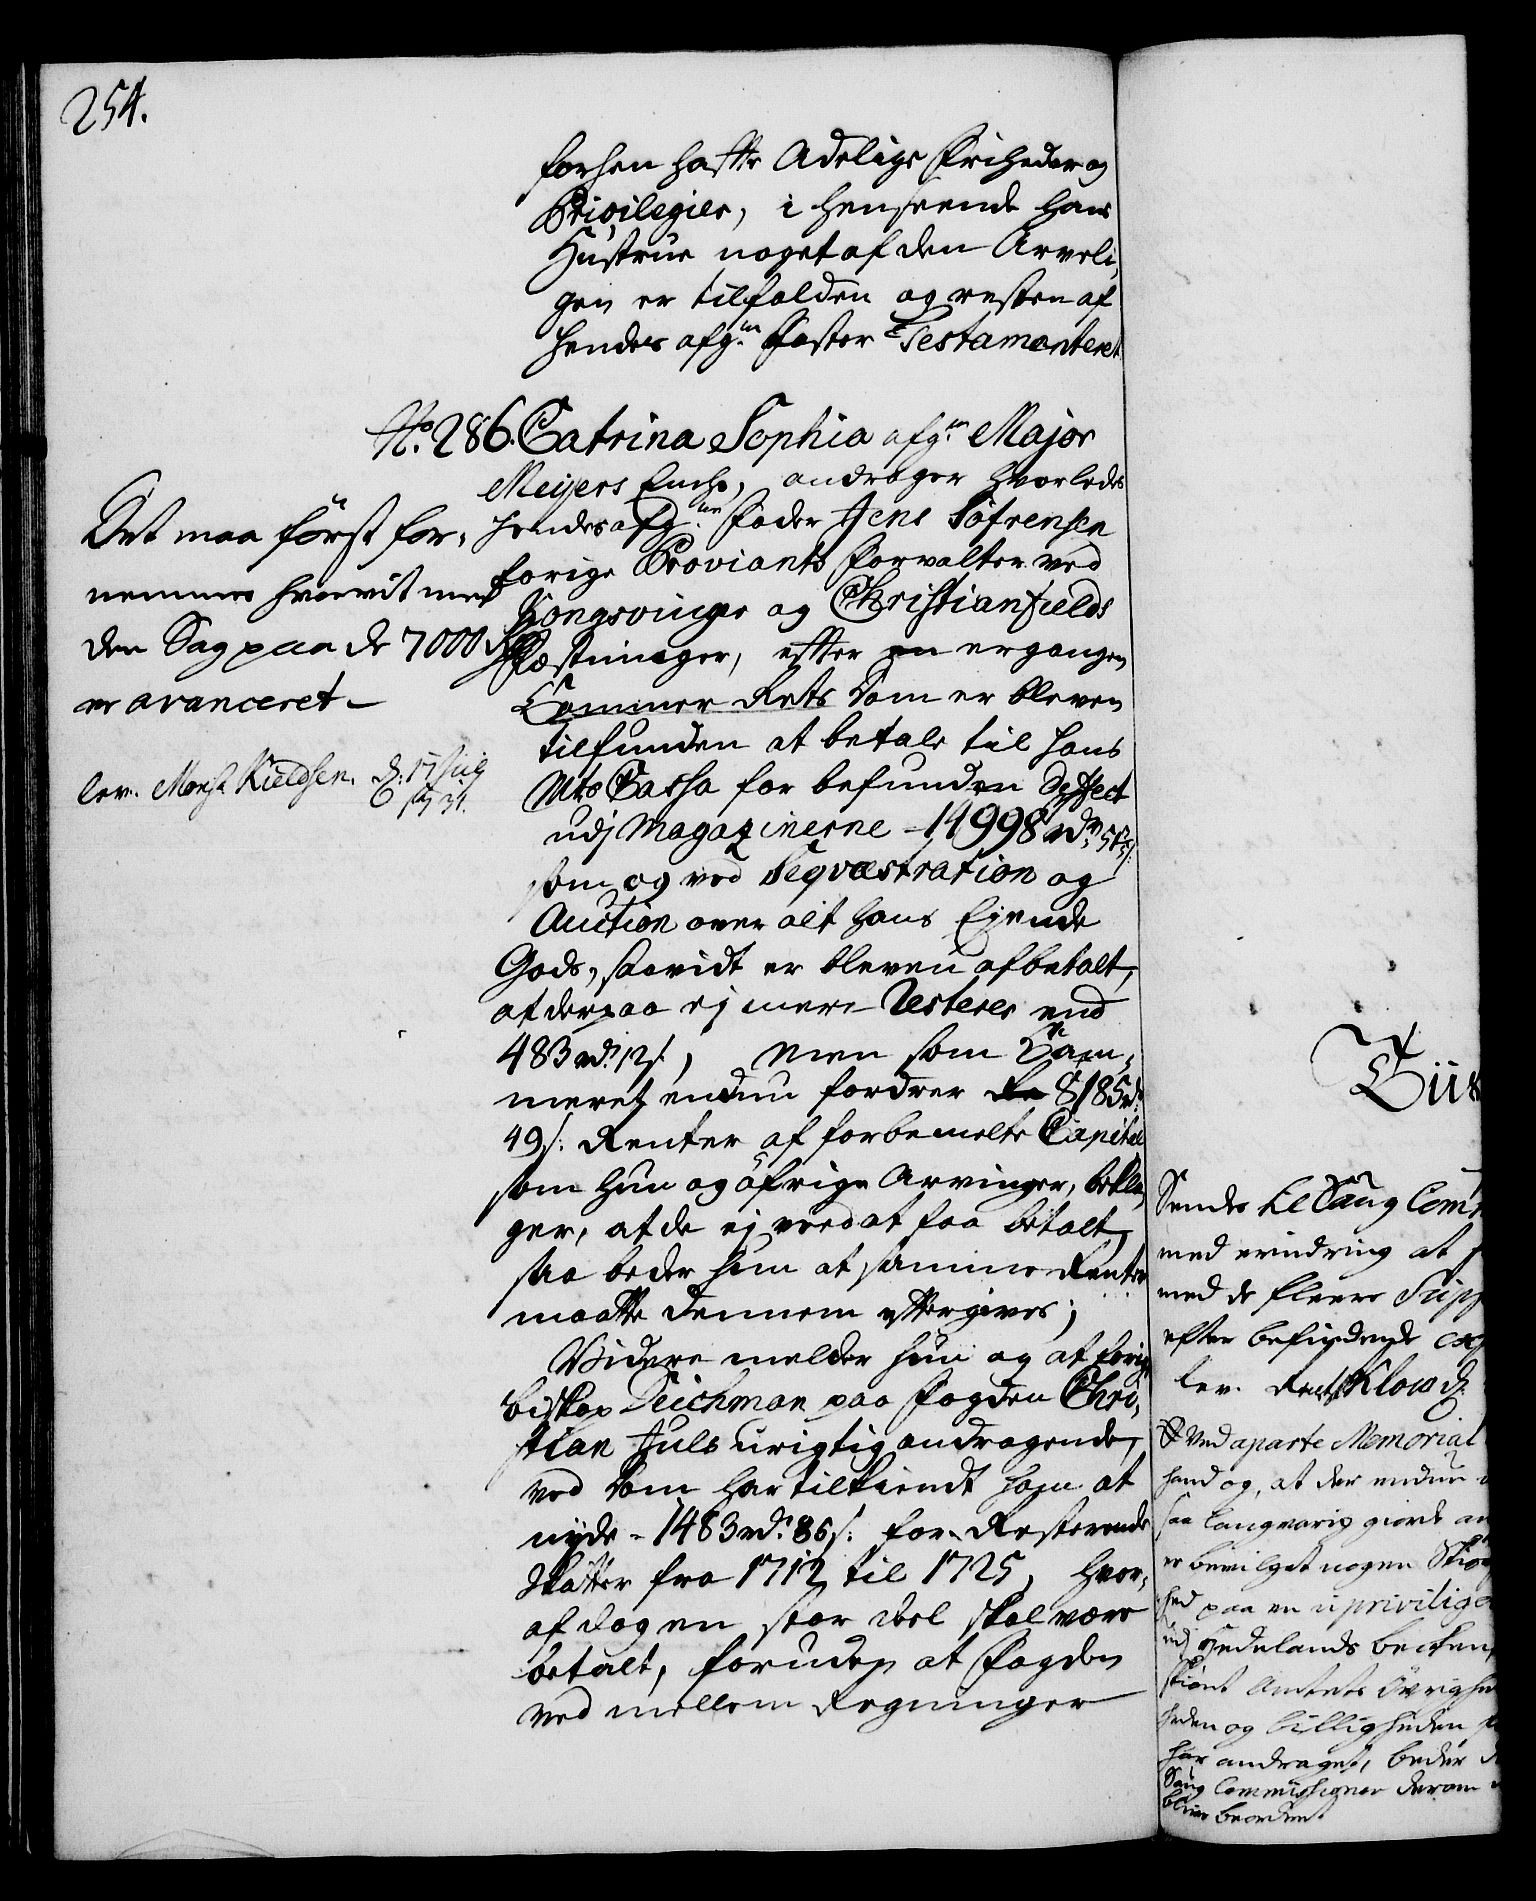 254.
forhen hafte Adelige Friheder og
Privilegier, i henseende hans
Hustrue noget af den Arveli,
gen er tilfalden og resten af
hendes afg.ne Faster Testamenteret
No. 286. Catrina Sophia afg.ne Major
Meijers Enche, andrager hvorledes
hendes afg.ne Fader Jens Söfrensen
forige Proviants Forvalter ved
Kongsvinger og Christianfields
Fæstninger, efter en ergangen
Kammer Rets Dom er bleven
tilfunden at betale til hans
Mts Cassa for befunden Deffect
udj Magazinerne - 14998 rdr 58 s:
som og ved Seqvæstration og
Auction over alt hans Ejende
Gods, saavidt er bleven afbetalt,
at derpaa ej mere Resterer end
483 rdr 12 s, men som Kam,
meret endnu fordrer De 8185 rdr
49 s: Renter af forbemelte Capital
som hun og öfrige Arvinger, bekla,
ger, at de ej veed at faa betalt,
saa beder hun at samme Renter
maatte dennem eftergives;
Videre melder hun og at forige
Biskop Deichman paa Fogden Chri,
stian Juls urigtig andragende,
ved Dom har tilkiendt ham at
nyde - 1483 rdr 86 s: for Resterende
Skatter fra 1712 til 1725, hvor,
af dog en stor deel skal være
betalt, foruden at Fogden
ved mellem Regninger
Det maa först for,
nemmes hvorvit med
den Sag paa de 7000 rdr
er avanceret -
lev. Monsr Kieldsen. d: 17 July
1731.
Sendes til Saug Com
med erindring at
med de fleere Supp
efter befindende
lev. Klow d:
Ved aparte Memorial
hand og, at der endnu
saa langvarig giorde
er bevilget nogen
hed paa en uprivilige
udj Hedelands
skiönt Amtets Övrighe
heden og billigheden
har andraget, beder
Saug Commissionen derom
bliver beordret